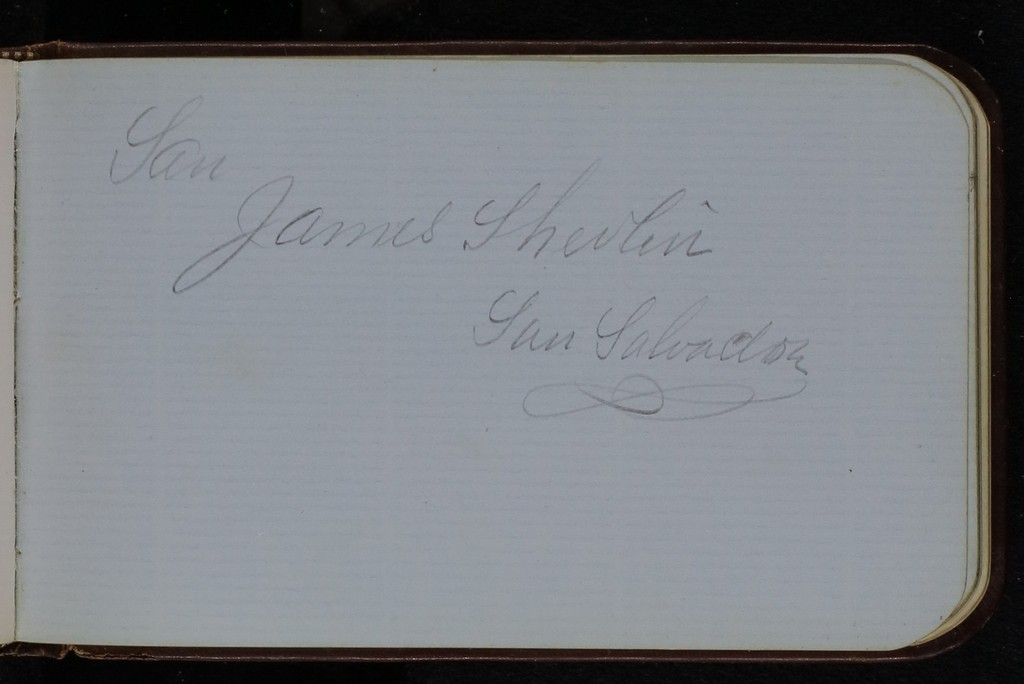 San
James Shevlin
San Salvador